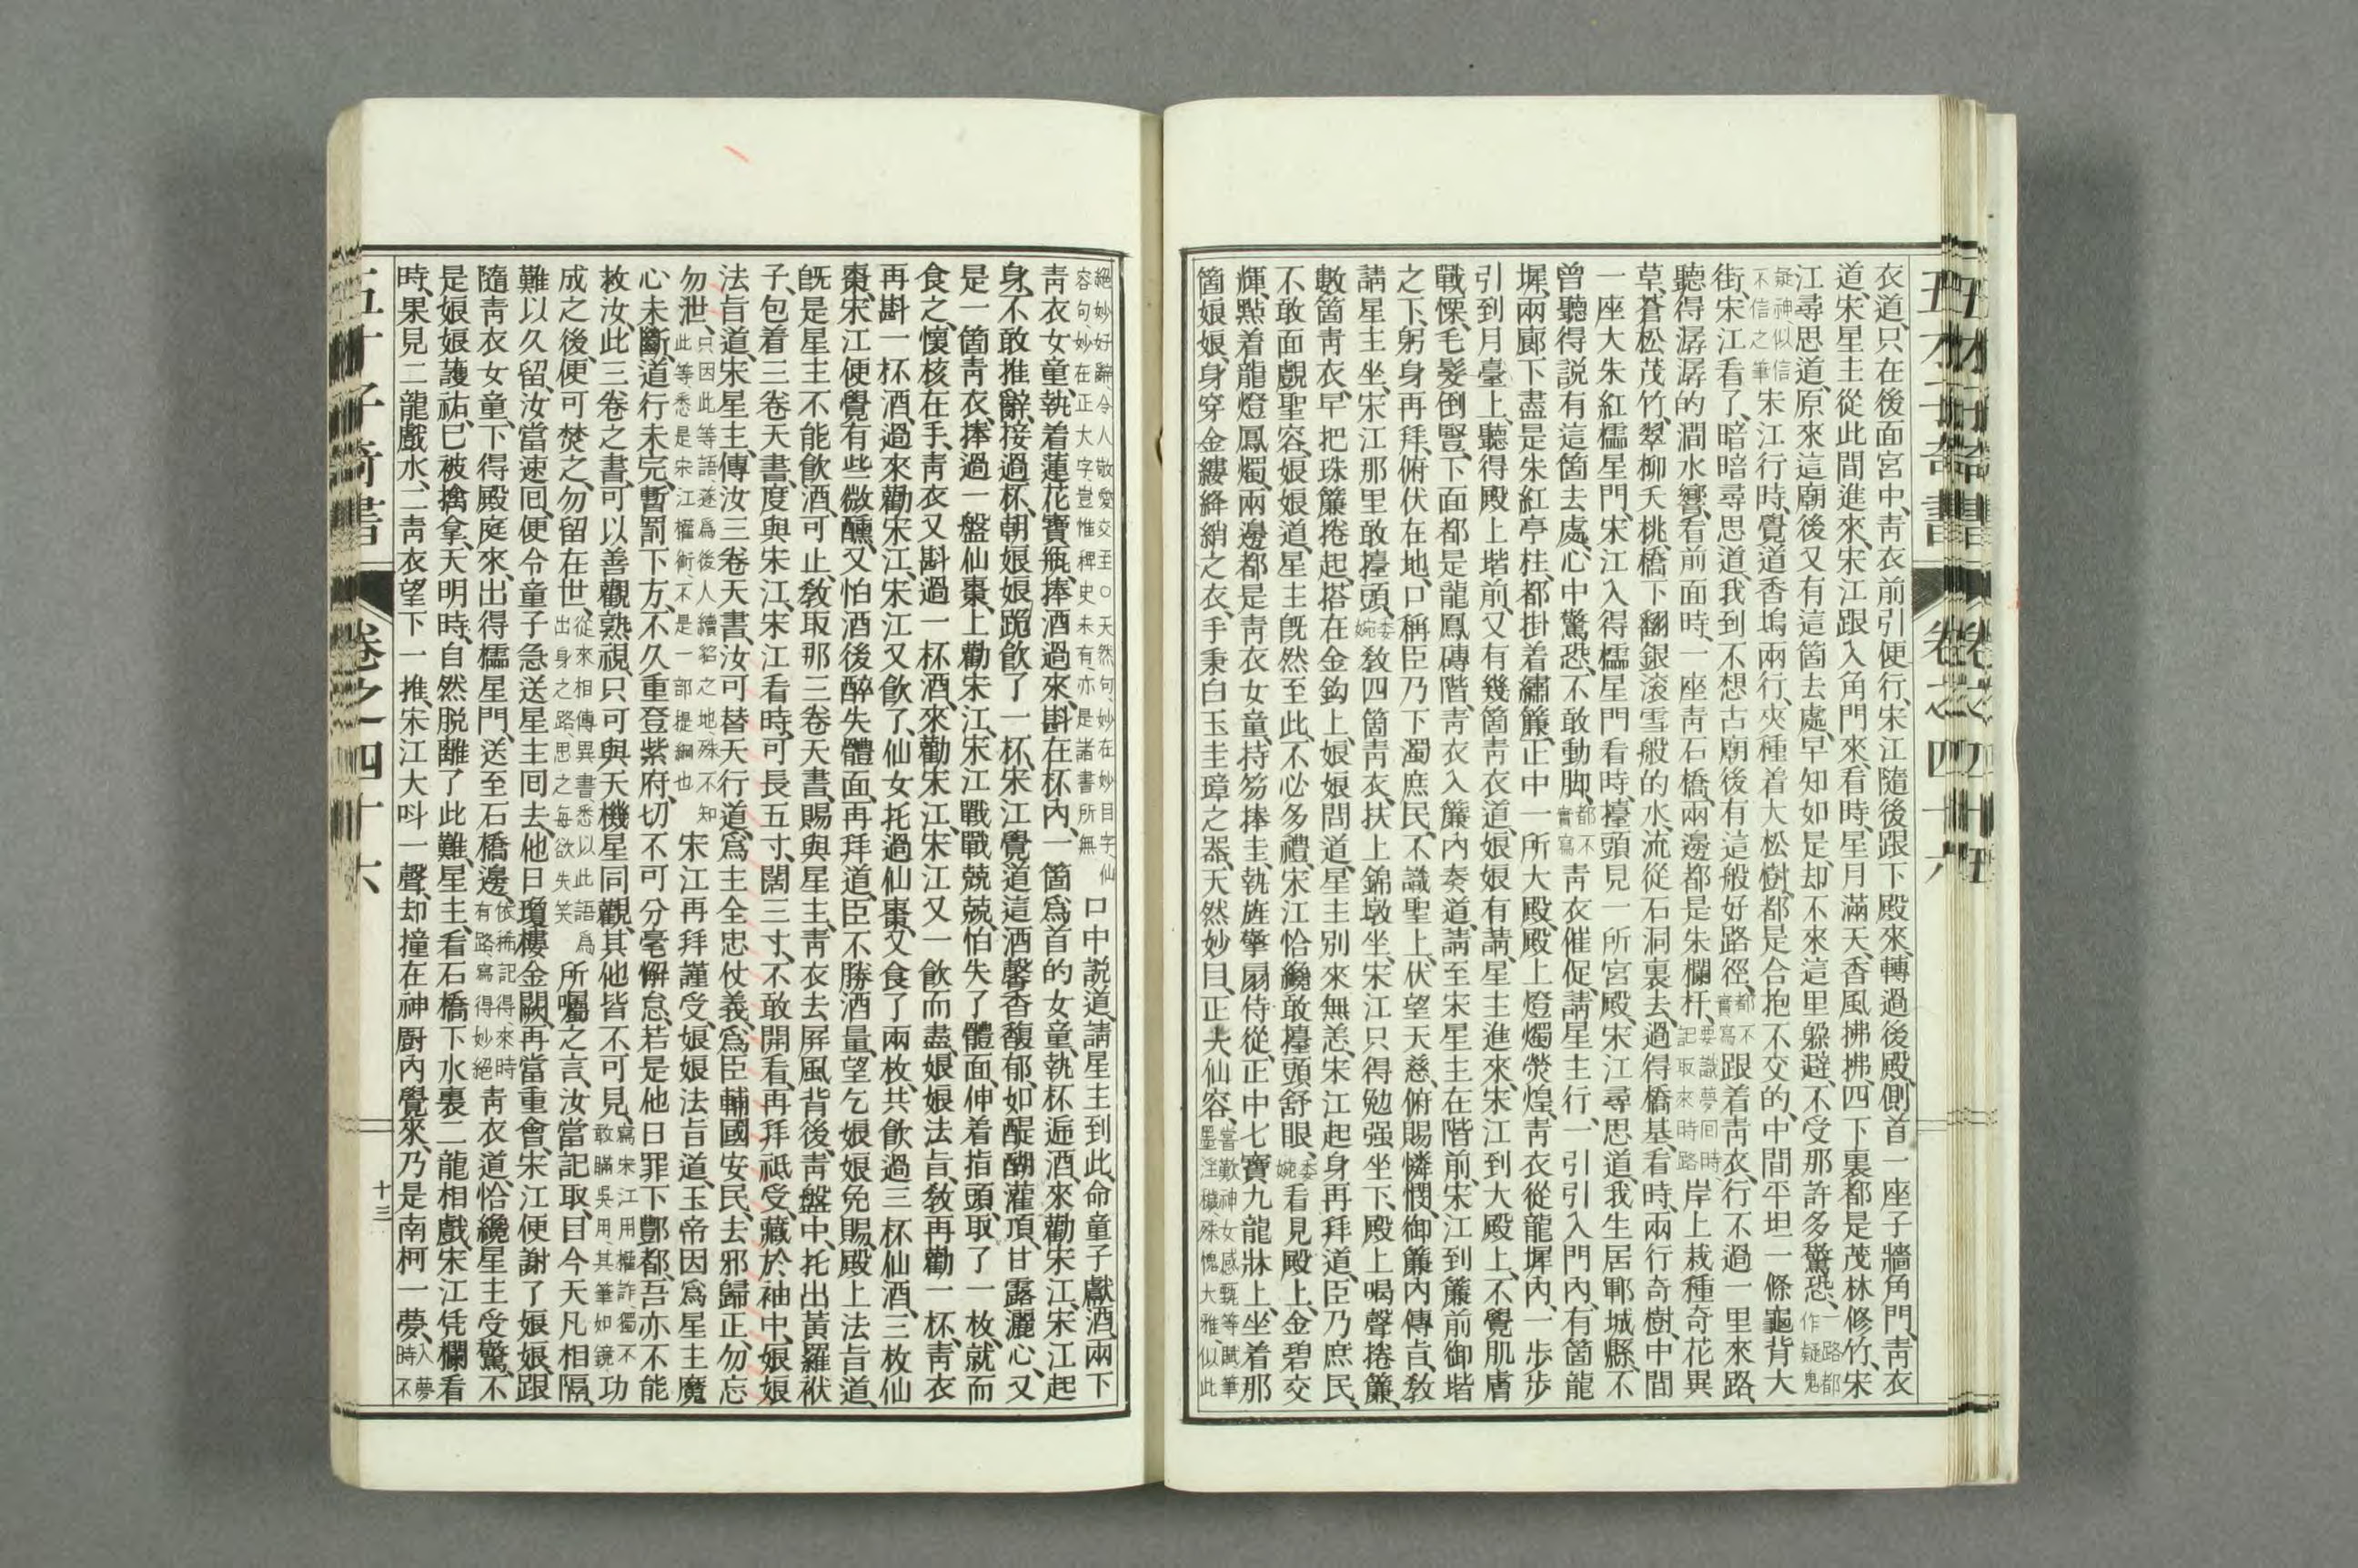 衣道、只在後面宮中、靑衣前引便行、宋江隨後跟下殿來、轉過後殿、側首一座子牆角門、靑衣
道、宋星主從此間進來、宋江跟入角門來、看時、星月滿天、香風拂拂、四下裏都是茂林修竹、宋
江尋思道、原來這廟後又有這箇去處、早知如是、却不來這里躲避、不受那許多驚恐、一路都作疑鬼
疑神似信不信之筆宋江行時、覺道香塢兩行、夾種着大松樹、都是合抱不交的、中間平坦一條龜背大
街、宋江看了、暗暗尋思道、我到不想古廟後有這般好路徑、都不實寫跟着靑衣、行不過一里來路、
聽得潺潺的澗水響、看前面時、一座靑石橋、兩邊都是朱欄杆、要識夢回時、記取來時路岸上栽種奇花異
草、蒼松茂竹、翠柳夭桃、橋下翻銀滚雪般的水、流從石洞裏去、過得橋基、看時、兩行奇樹、中間
一座大朱紅櫺星門、宋江入得櫺星門看時、擡頭見一所宮殿、宋江尋思道、我生居鄆城縣、不
曾聽得説有這箇去處、心中驚恐、不敢動脚、都不實寫靑衣催促、請星主行、一引引入門內、有箇龍
墀、兩廊下盡是朱紅亭柱、都掛着繡簾、正中一所大殿、殿上燈燭熒煌、靑衣從龍墀內、一步步
引到月臺上、聽得殿上堦前、又有幾箇靑衣道、娘娘有請、星主進來、宋江到大殿上、不覺肌膚
戰慄、毛髮倒豎、下面都是龍鳳磚階、靑衣入簾內奏道、請至宋星主在階前、宋江到簾前御堦
之下、躬身再拜、俯伏在地、口稱臣乃下濁庶民、不識聖上、伏望天慈、俯賜憐憫、御簾內傳旨、敎
請星主坐、宋江那里敢擡頭、委婉敎四箇靑衣、扶上錦墩坐、宋江只得勉强坐下、殿上喝聲捲簾、
數箇靑衣、早把珠簾捲起、搭在金鈎上、娘娘問道、星主別來無恙、宋江起身再拜道、臣乃庶民、
不敢面覷聖容、娘娘道、星主旣然至此、不必多禮、宋江恰纔敢擡頭舒眼、委婉看見殿上、金碧交
輝、點着龍燈鳳燭、兩邊都是靑衣女童、持笏捧圭、執旌擎扇侍從、正中七寶九龍牀上、坐着那
箇娘娘、身穿金縷絳綃之衣、手秉白玉圭璋之器、天然妙目、正大仙容、嘗歎神女感甄等賦、筆墨淫穢、殊愧大雅、似此
絕妙好辭、令人敬愛交至○天然句、妙在妙目字、仙容句、妙在正大字、豈惟稗史未有、亦是諸書所無口中説道、請星主到此、命童子獻酒、兩下
靑衣女童、執着蓮花寶瓶、捧酒過來、斟在杯內、一箇爲首的女童、執杯遞酒、來勸宋江、宋江起
身、不敢推辭、接過杯、朝娘娘跪飮了一杯、宋江覺道這酒馨香馥郁、如醍醐灌頂、甘露灑心、又
是一箇靑衣、捧過一盤仙棗、上勸宋江、宋江戰戰兢兢、怕失了體面、伸着指頭、取了一枚、就而
食之、懷核在手、靑衣又斟過一杯酒、來勸宋江、宋江又一飮而盡、娘娘法旨、敎再勸一杯、靑衣
再斟一杯酒、過來勸宋江、宋江又飮了、仙女托過仙棗、又食了兩枚、共飮過三杯仙酒、三枚仙
棗、宋江便覺有些微醺、又怕酒後醉失體面、再拜道、臣不勝酒量、望乞娘娘免賜、殿上法旨道、
旣是星主不能飮酒、可止、敎取那三卷天書、賜與星主、靑衣去屛風背後、靑盤中、托出黃羅袱
子、包着三卷天書、度與宋江、宋江看時、可長五寸、闊三寸、不敢開看、再拜祗受、藏於袖中、娘娘
法旨道、宋星主、傳汝三卷天書、汝可替天行道、爲主全忠仗義、爲臣輔國安民、去邪歸正、勿忘
勿泄、只因此等語、遂爲後人續貂之地、殊不知此等悉是宋江權術、不是一部提綱也宋江再拜謹受、娘娘法旨道、玉帝因爲星主魔
心未斷、道行未完、暫罰下方、不久重登紫府、切不可分毫懈怠、若是他日罪下酆都、吾亦不能
救汝、此三卷之書、可以善觀熟視、只可與天機星同觀、其他皆不可見、寫宋江用權詐、獨不敢瞞吳用、其筆如鏡功
成之後、便可焚之、勿留在世、從來相傳異書、悉以此語爲出身之路、思之每欲失笑所囑之言、汝當記取、目今天凡相隔、
難以久留、汝當速回、便令童子急送星主回去、他日瓊樓金闕、再當重會、宋江便謝了娘娘、跟
隨靑衣女童、下得殿庭來、出得櫺星門、送至石橋邊、依稀記得來時有路、寫得妙絕靑衣道、恰纔星主受驚、不
是娘娘護祐、已被擒拿、天明時、自然脱離了此難、星主、看石橋下水裏二龍相戲、宋江凭欄看
時、果見二龍戲水、二靑衣望下一推、宋江大呌一聲、却撞在神厨內、覺來、乃是南柯一夢、入夢時不
五才子奇書 卷之四十六
十三